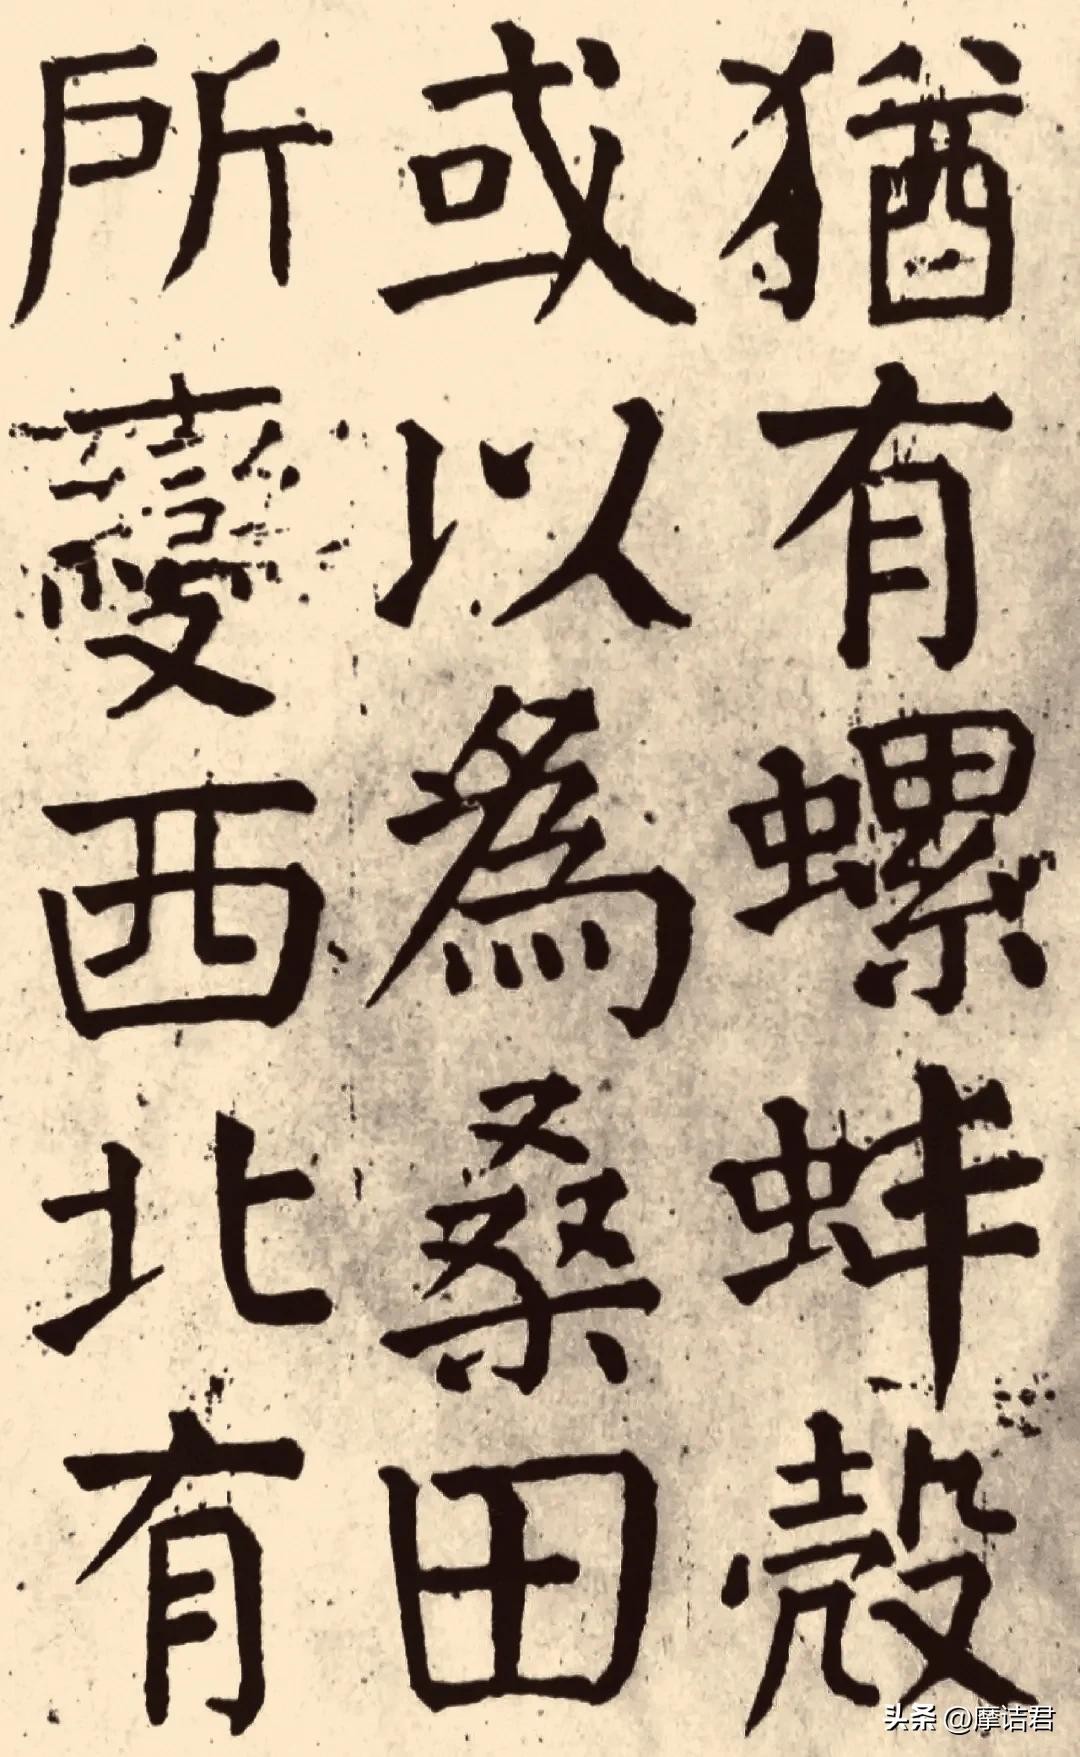 猶有螺蚌殼
或以為桑田
所變西北有
头条 @摩诘君